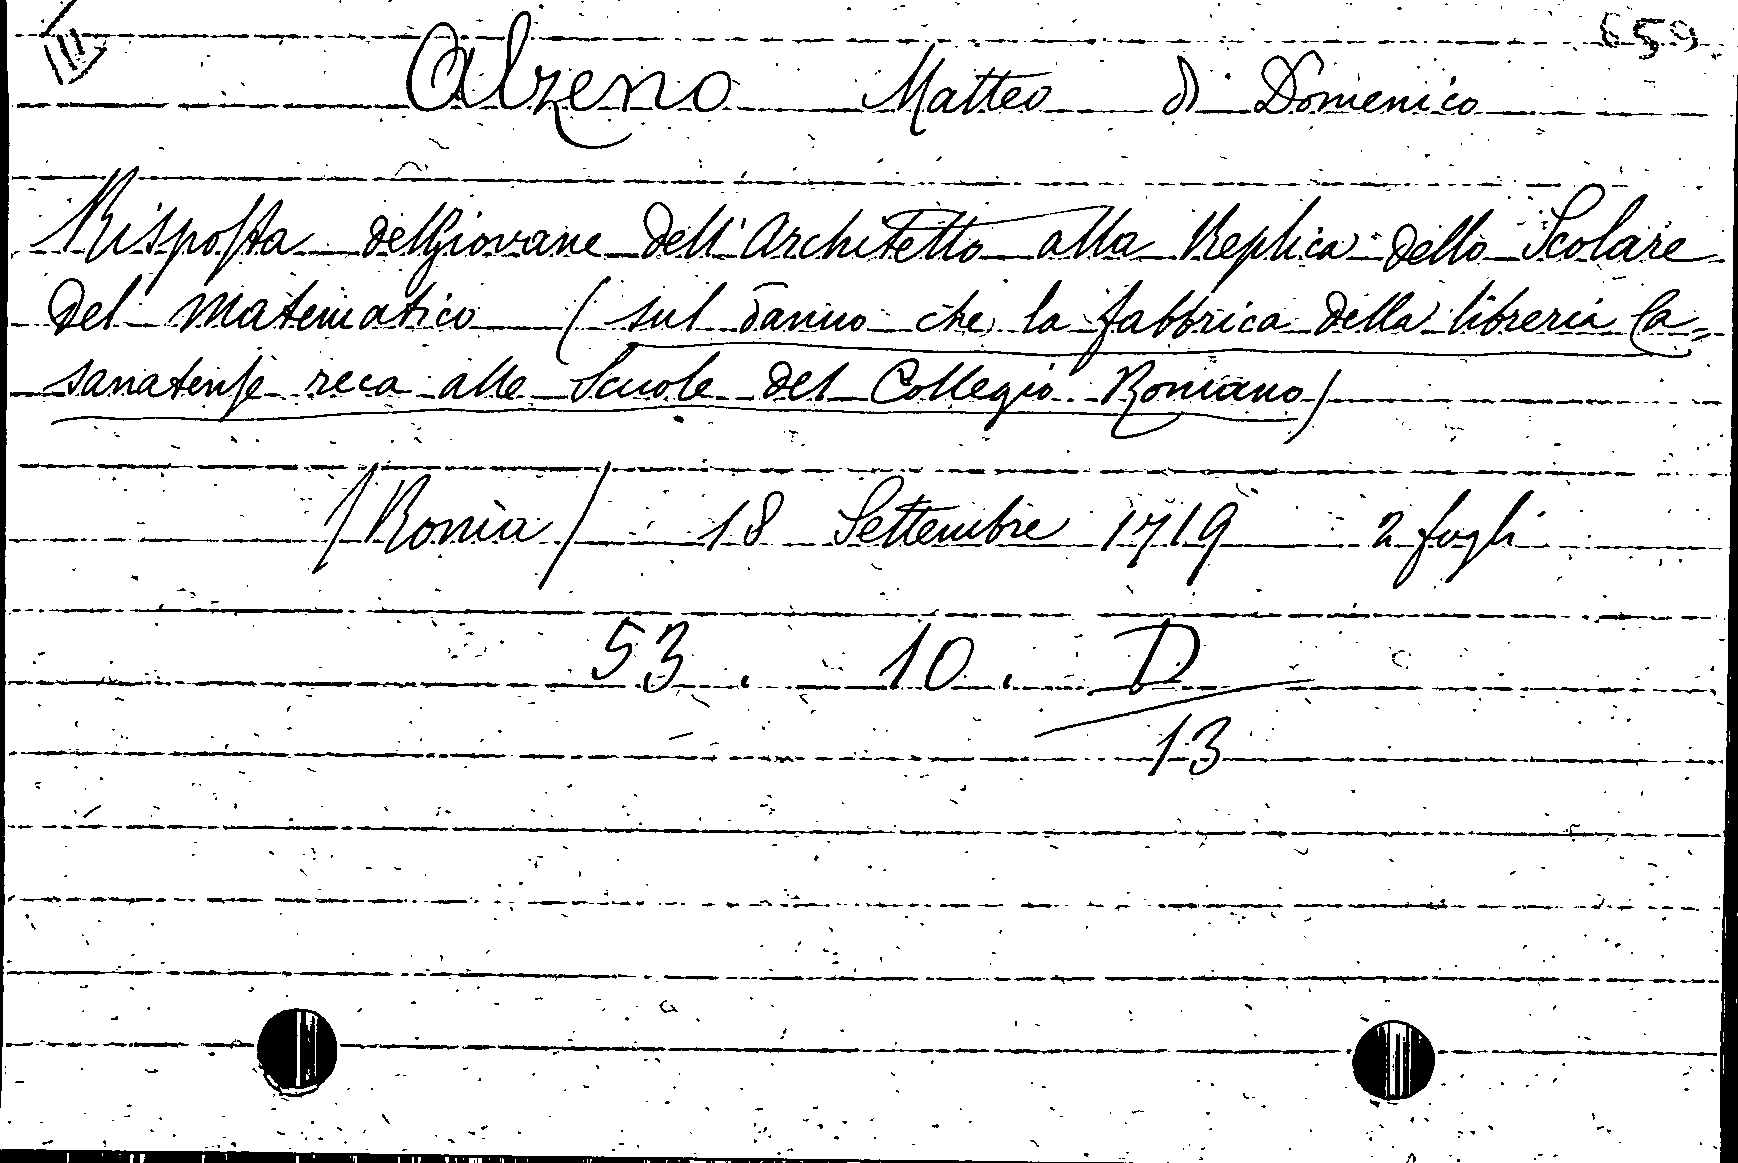 659
Alzeno Matteo di Domenico
Risposta del Giovane dell'Architetto alla Replica dello Scolare
del Matematico (sul danno che la fabbrica della libreria Ca=
sanatense reca alle Scuole del Collegio Romano)
(Roma) 18 Settembre 1719 2 fogli
53. 10. D
13